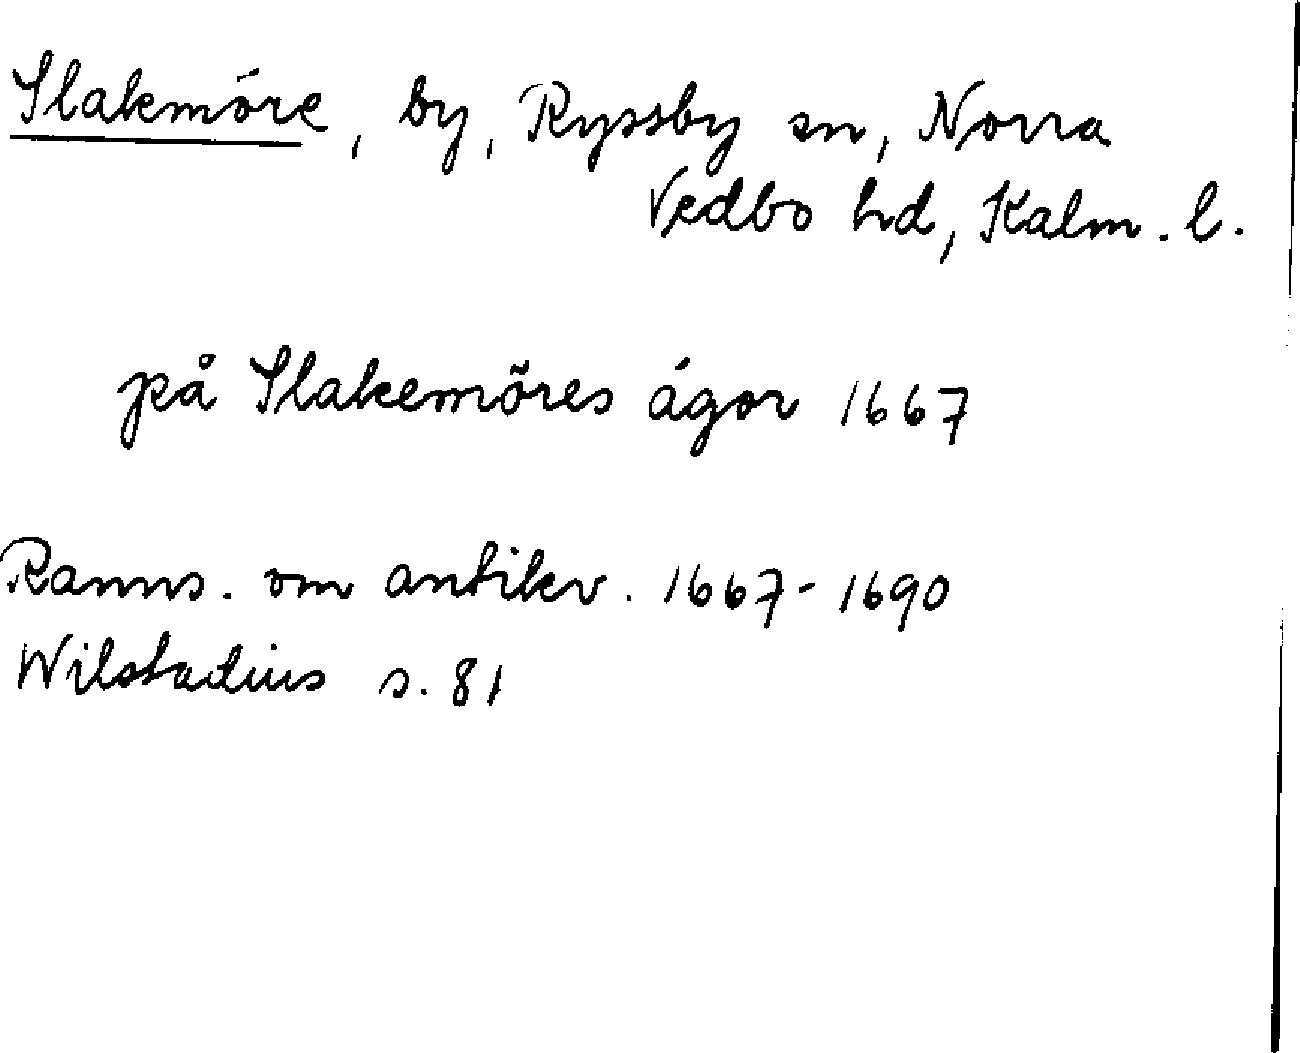 Slakmöre, by, Ryssby sn, Norra
Vedbo hd, Kalm. l.
på Slakemöres ägor 1667
Ranns. om antikv. 1667-1690
Wilstadius s. 81